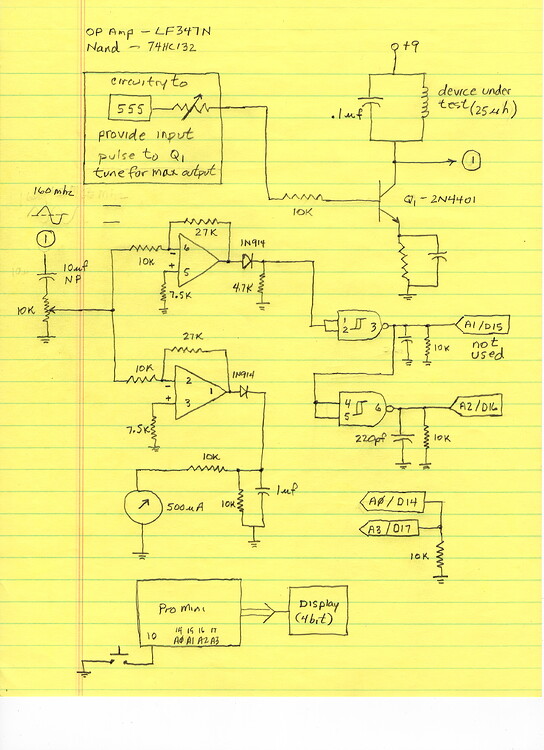 OP Amp - LF347N
Nand - 74HC132
circuitry to
555
provide input
pulse to Q1
tune for max output
+9
.1uf
device under
test (25uh)
1
Q1 - 2N4401
10K
160 mhz
1
10uf
NP
10K
27K
10K
6
-
+
5
7.5K
1N914
4.7K
1
2
3
A1/D15
not
used
10K
27K
10K
2
-
+
3
1
1N914
7.5K
4
5
6
A2/D16
220pf
10K
10K
500uA
10K
1uf
AØ/D14
A3/D17
10K
Pro mini
10
14 15 16 17
AØ A1 A2 A3
Display
(4bit)